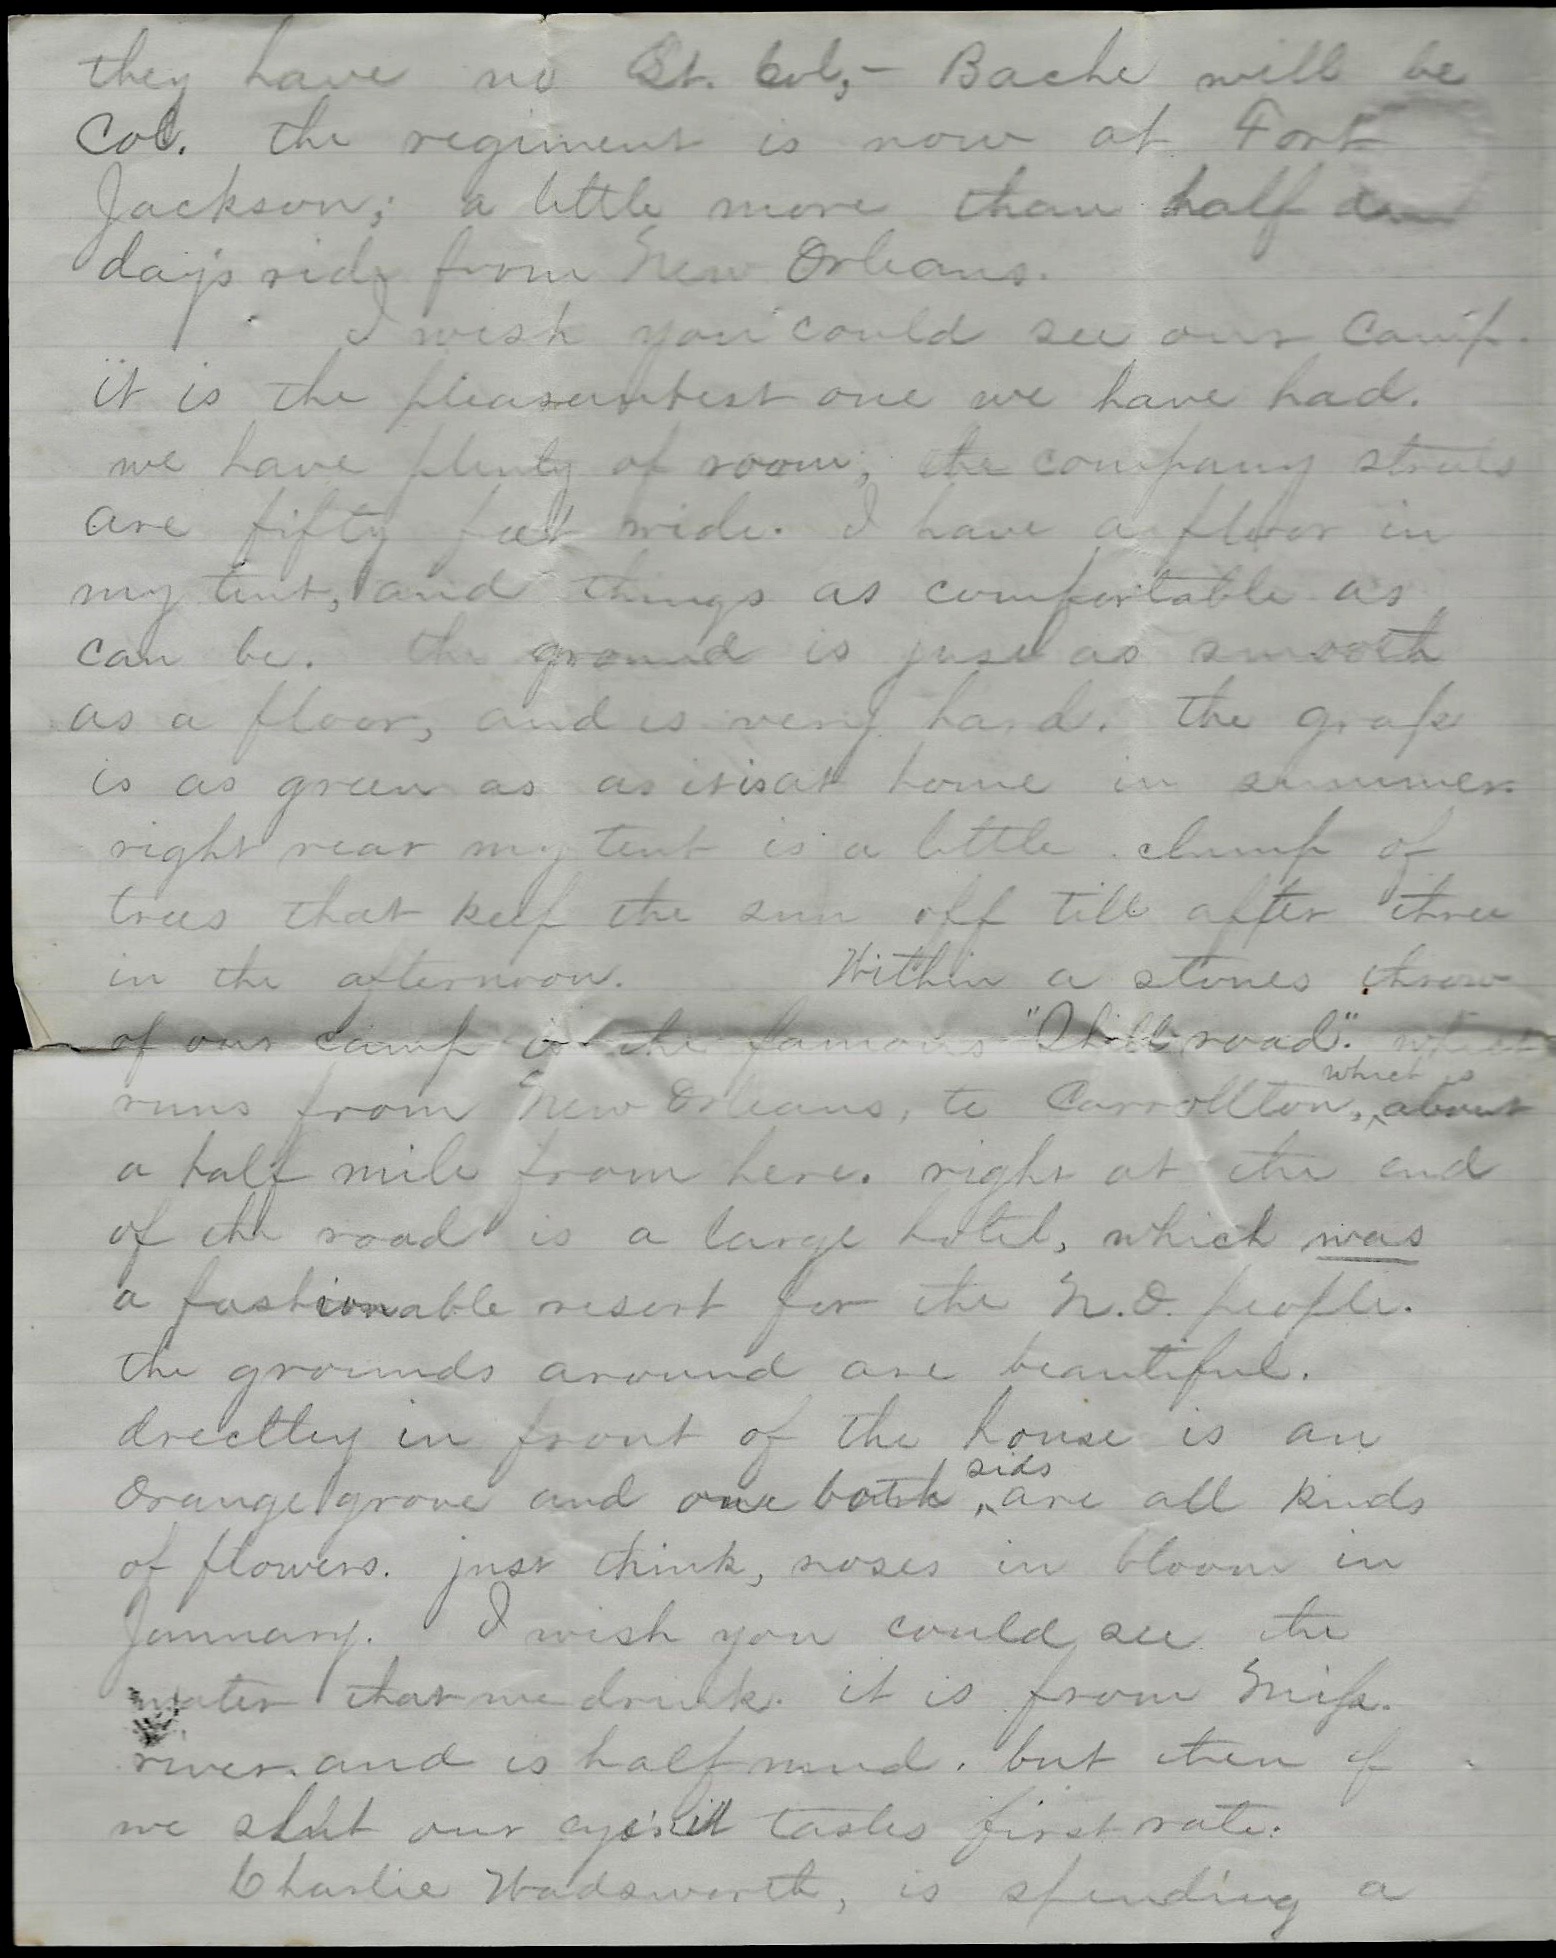 they have no Lt. Col,- Bache will be
Col. the regiment is now at Fort
Jackson; a little more than half a
day's ride from New Orleans.
I wish you could see our Camp.
it is the pleasantest one we have had.
we have plenty of room, the company streets
are fifty feet wide. I have a floor in
my tent, and things as comfortable as
can be. the ground is just as smooth
as a floor, and is very hard. the grass
is as green as as it is at home in summer.
right near my tent is a little clump of
trees that keep the sun off till after three
in the afternoon. Within a stones throw
of our camp is the famous "Shell road". which
runs from New Orleans, to Carrollton, which is about
a half mile from here. right at the end
of the road is a large hotel, which was
a fashionable resort for the N.O. people.
the grounds around are beautiful.
drectley in front of the house is an
Orange grove and one both sids are all kinds
of flowers. just think, roses in bloom in
January. I wish you could see the
water that we drink. it is from Miss.
river. and is half mud. but then if
we shut our eye's it tastes first rate.
Charlie Wadsworth, is spending a